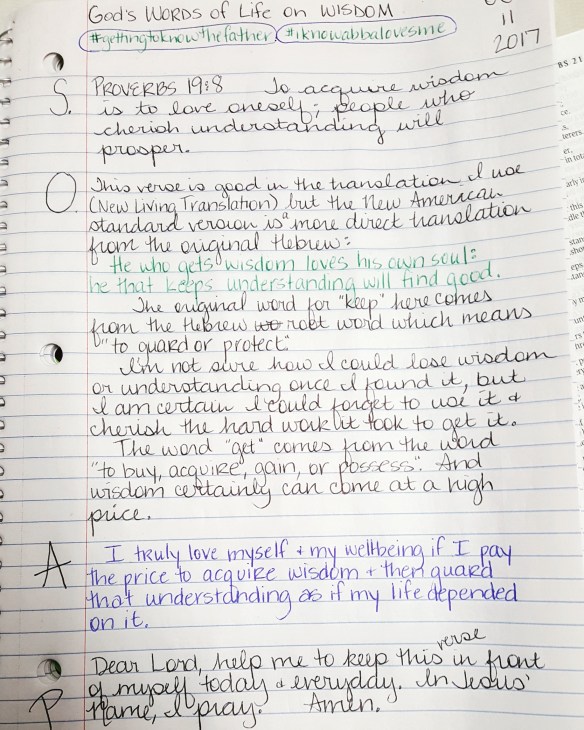 God's Words of Life on WISDOM
#gettingtoknowthefather #iknowabbalovesme
11
2017
S. PROVERBS 19:8 To acquire wisdom
is to love oneself; people who
cherish understanding will
prosper.
O This verse is good in the translation I use
(New Living Translation) but the New American
standard version is a more direct translation
from the original Hebrew:
He who gets wisdom loves his own soul:
he that keeps understanding will find good.
The original word for "keep" here comes
from the Hebrew wo root word which means
"to guard or protect."
I'm not sure how I could lose wisdom
or understanding once I found it, but
I am certain I could forget to use it &
cherish the hard work it took to get it.
The word "get" comes from the word
"to buy, acquire, gain, or possess". And
wisdom certainly can come at a high
price.
A I truly love myself + my wellbeing if I pay
the price to acquire wisdom + then guard
that understanding as if my life depended
on it.
Dear Lord, help me to keep this verse in front
of myself today & everyday. In Jesus'
P Name, I pray. Amen.
BS 21